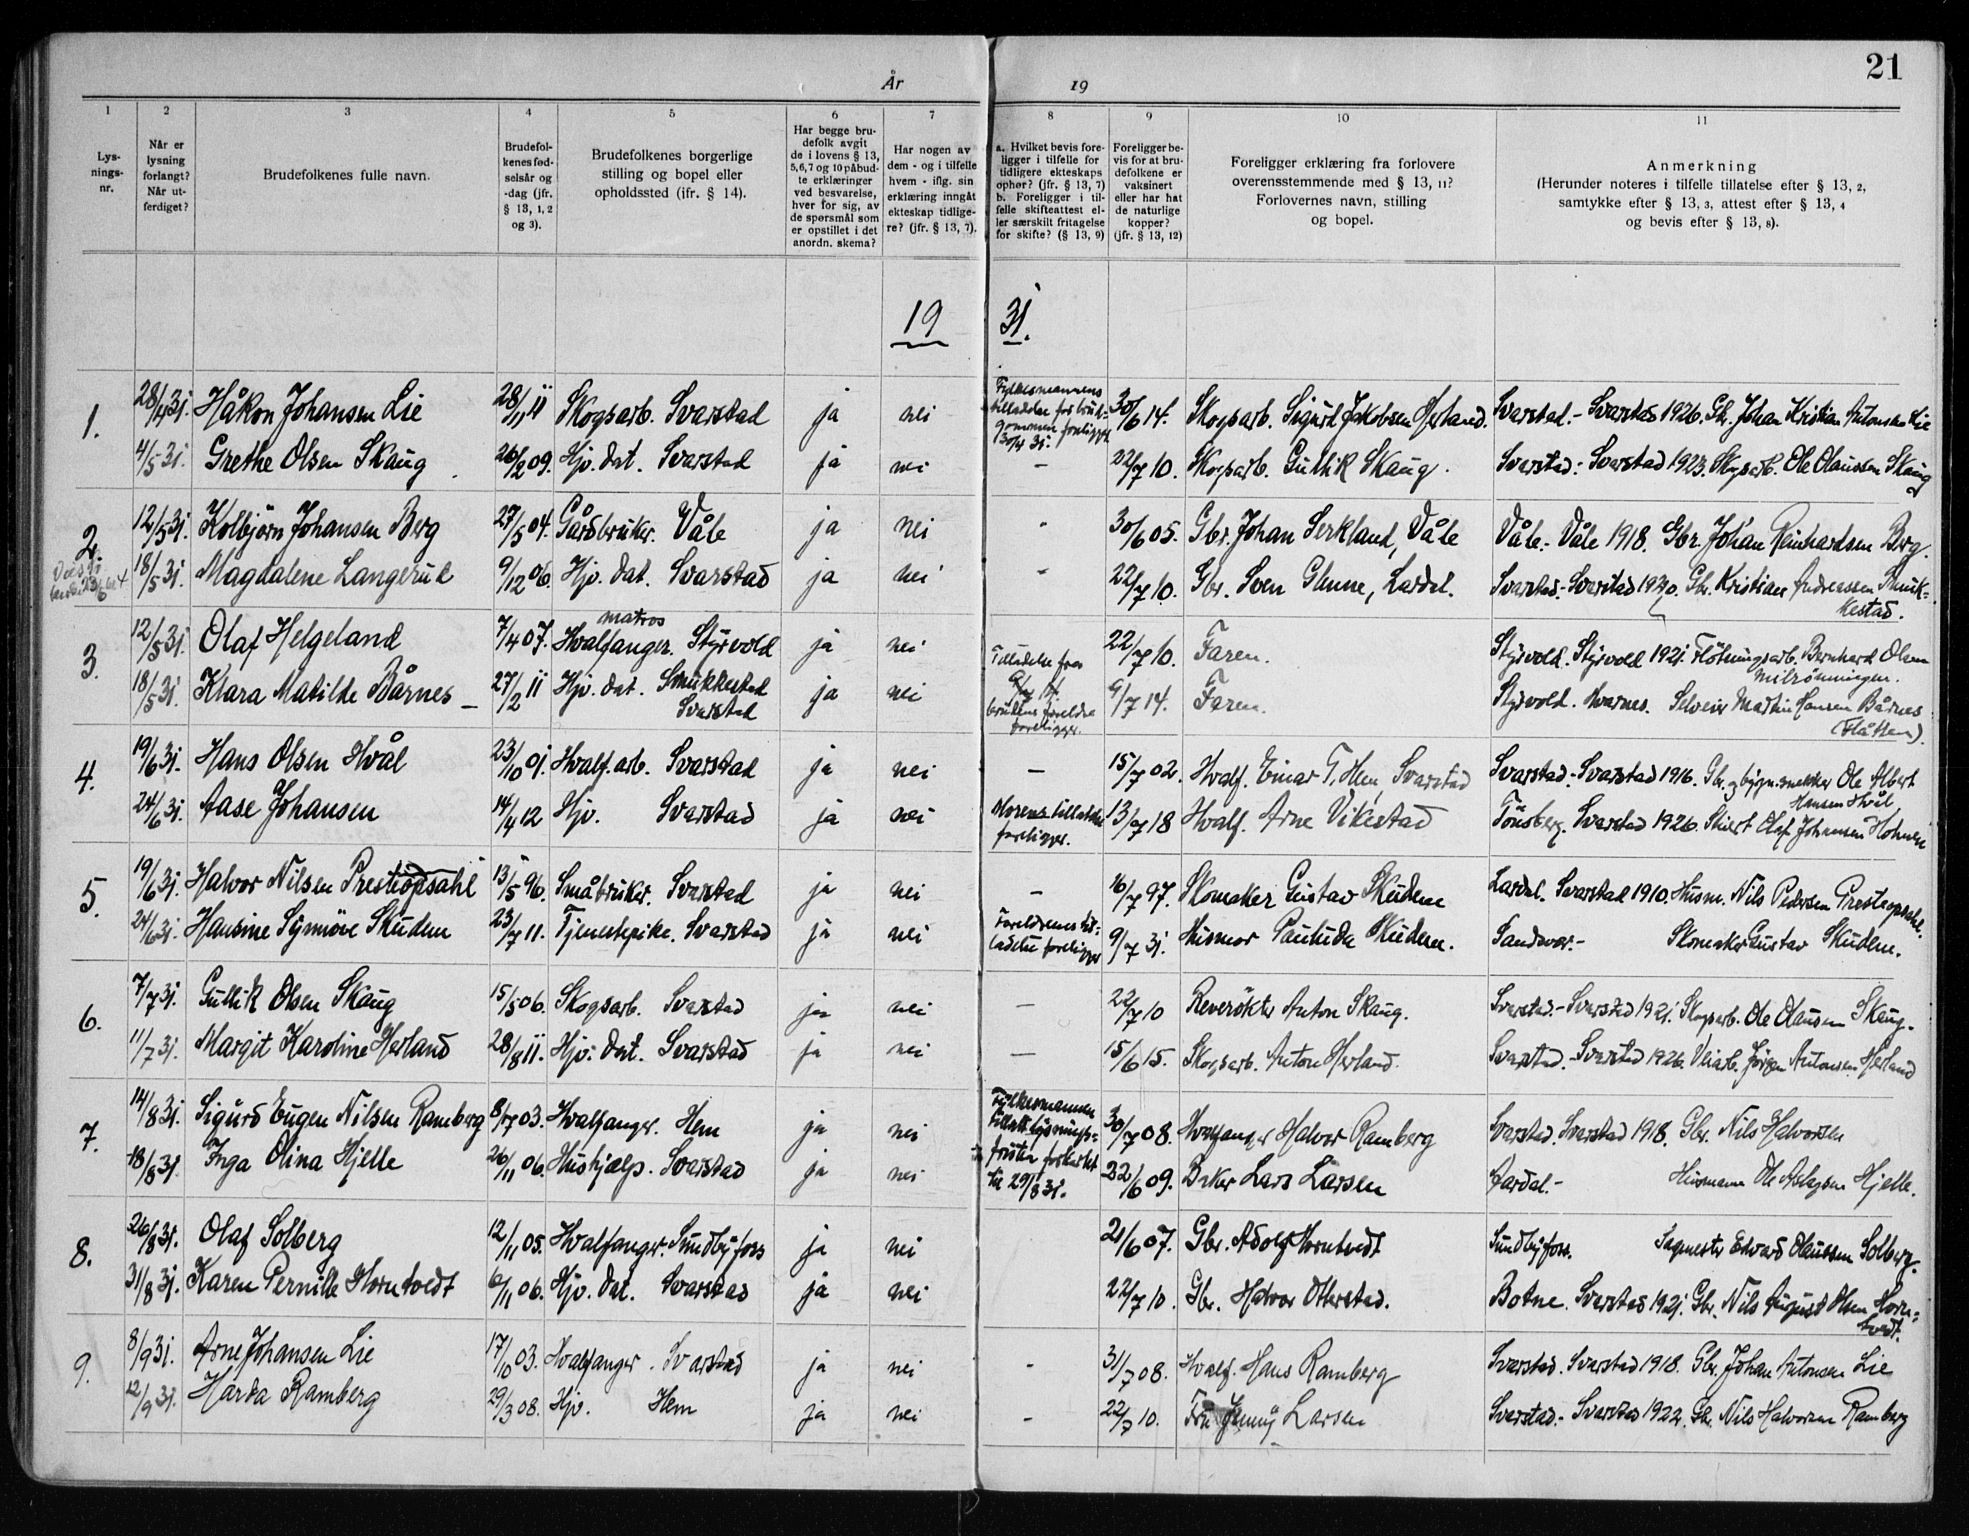 21
År 19
1 2 3 4 5 6 7 8 9 10 11
Lys-
nings-
nr.
Når er
lysning
forlangt?
Når ut-
ferdiget?
Brudefolkenes fulle navn.
Brudefol-
kenes fød-
selsår og
-dag (jfr.
§ 13, 1, 2
og 3).
Brudefolkenes borgerlige
stilling og bopel eller
opholdssted (jfr. § 14).
Har begge bru-
defolk avgit
de i lovens § 13,
5,6,7 og 10 påbud-
te erklæringer
ved besvarelse,
hver for sig, av
de spørsmål som
er opstillet i det
anordn. skema?
Har nogen av
dem - og i tilfelle
hvem - iflg. sin
erklæring inngåt
ekteskap tidlige-
re? (jfr. § 13, 7).
a. Hvilket bevis fore-
ligger i tilfelle for
tidligere ekteskaps
ophør? (jfr. § 13, 7)
b. Foreligger i til-
felle skifteattest el-
ler særskilt fritagelse
for skifte? (§ 13, 9)
Foreligger be-
vis for at bru-
defolkene er
vaksinert
eller har hat
de naturlige
kopper?
(jfr. § 13, 12)
Foreligger erklæring fra forlovere
overensstemmende med § 13, 11?
Forlovernes navn, stilling
og bopel.
Anmerkning
(Herunder noteres i tilfelle tillatelse efter § 13, 2,
samtykke efter § 13, 3, attest efter § 13, 4
og bevis efter § 13, 8).
19 31.
1. 28/4 31. Håkon Johansen Lie 28/11 11 Skogsarb. Svarstad ja nei Fylkesmannens tilladelse for brud-gommen foreligger 30/4 31. 30/6 14. Skogsarb. Sigurd Jakobsen Herland. Svarstad. - Svarstad 1926. Gbr. Johan Kristian Antonsen Lie
4/5 31. Grethe Olsen Skaug 26/2 09. Hjv. dat. Svarstad ja nei - 22/7 10. Skogsarb. Gullik Skaug. Svarstad: Svarstad 1923. Skogsarb. Ole Olaussen Skaug
2. 12/5 31. Kolbjørn Johansen Berg 27/5 04. Gårdbruker. Våle ja nei - 30/6 05. Gbr. Johan Serkland, Våle Våle. - Våle 1918. Gbr. Johan Reinhardsen Berg.
18/5 31. Magdalene Langerud 9/12 06. Hjv. dat. Svarstad ja nei - 22/7 10. Gbr. Sven Glenne, Lardal. Svarstad. - Svarstad 1920. Gbr. Kristian Andreassen
3. 12/5 31. Olaf Helgeland 7/4 07. matros Hvalfanger. Styrvold ja nei 22/7 10. Faren. Styrvold. Styrvold 1921. Fløtningsarb. Bernhard Olsen
18/5 31. Klara Matilde Bårnes - 27/2 11 Hjv. dat. Smukkestad Svarstad ja nei Tilladelse fra brudens foreldre foreligger. 9/7 14. Faren. Styrvold. Hvarnes. Selveier Martin Hansen Bårnes (Flåtten).
4. 19/6 31. Hans Olsen Hvål 23/10 01. Hvalf. arb. Svarstad ja nei - 15/7 02. Hvalf. Einar T. Hem, Svarstad Svarstad. - Svarstad 1916. Gbr. og bygn.snekker Ole Albert Hansen Hvål
24/6 31. Aase Johansen 14/4 12 Hjv. Svarstad ja nei Morens tilladelse foreligger. 13/7 18 Hvalf. Arne Vikestad Tønsberg. Svarstad 1926. Olaf Johansen
5. 19/6 31. Halvor Nilsen Presteopsahl 13/5 96. Småbruker. Svarstad ja nei - 16/7 97. Skomaker Gustav Skudem Lardal. Svarstad 1910. Husm. Nils Pedersen Presteopsahl.
24/6 31. Hansine Synnøve Skudem 23/7 11. Tjenestepike. Svarstad ja nei Foreldrenes til-ladelse foreligger 9/7 31. Husmor Paulude Skudem. Sandsvær. - Skomaker Gustav Skudem.
6. 7/7 31. Gullik Olsen Skaug 15/5 06. Skogsarb. Svarstad ja nei - 22/7 10 Reverøkter Anton Skaug. Svarstad. - Svarstad 1921. Skogsarb. Ole Olausen Skaug.
11/7 31. Margit Karoline Herland 28/8 11. Hjv. dat. Svarstad ja nei - 15/6 15. Skogsarb. Anton Herland. Svarstad. - Svarstad 1926. Veiarb. Jørgen Antonsen Herland
7. 14/8 31. Sigurd Eugen Nilsen Ramberg 8/7 03. Hvalfanger. Hem ja nei Fylkesmannen tillatt lysnings-fristen forkortet til 29/8 31. 30/7 08. Hvalfanger Halvor Ramberg Svarstad. Svarstad 1918. Gbr. Nils Halvorsen
18/8 31. Inga Olina Hjelle 26/11 06. Hushjælp. Svarstad ja nei 22/6 09. Baker Lars Larsen Aardal. - Husmann Ole Hjelle.
8. 26/8 31. Olaf Solberg 12/11 05. Hvalfanger. Sundbyfoss ja nei 21/6 07. Gbr. Adolf Horntvedt Sundbyfoss. Sagmester Edvard Olaussen Solberg.
31/8 31. Karen Pernille Horntvedt 6/11 06. Hjv. dat. Svarstad ja nei 22/7 10. Gbr. Halvor Otterstad. Botne. Svarstad 1921. Gbr. Nils August Olsen Horn-tvedt.
9. 8/9 31. Arne Johansen Lie 17/10 03. Hvalfanger. Svarstad ja nei - 31/7 08. Hvalf. Hans Ramberg Svarstad. Svarstad 1918. Gbr. Johan Antonsen Lie
12/9 31. Harda Ramberg 29/3 08. Hjv. Hem ja nei - 22/7 10. Fru Jenny Larsen Svarstad. - Svarstad 1922. Gbr. Nils Halvorsen Ramberg